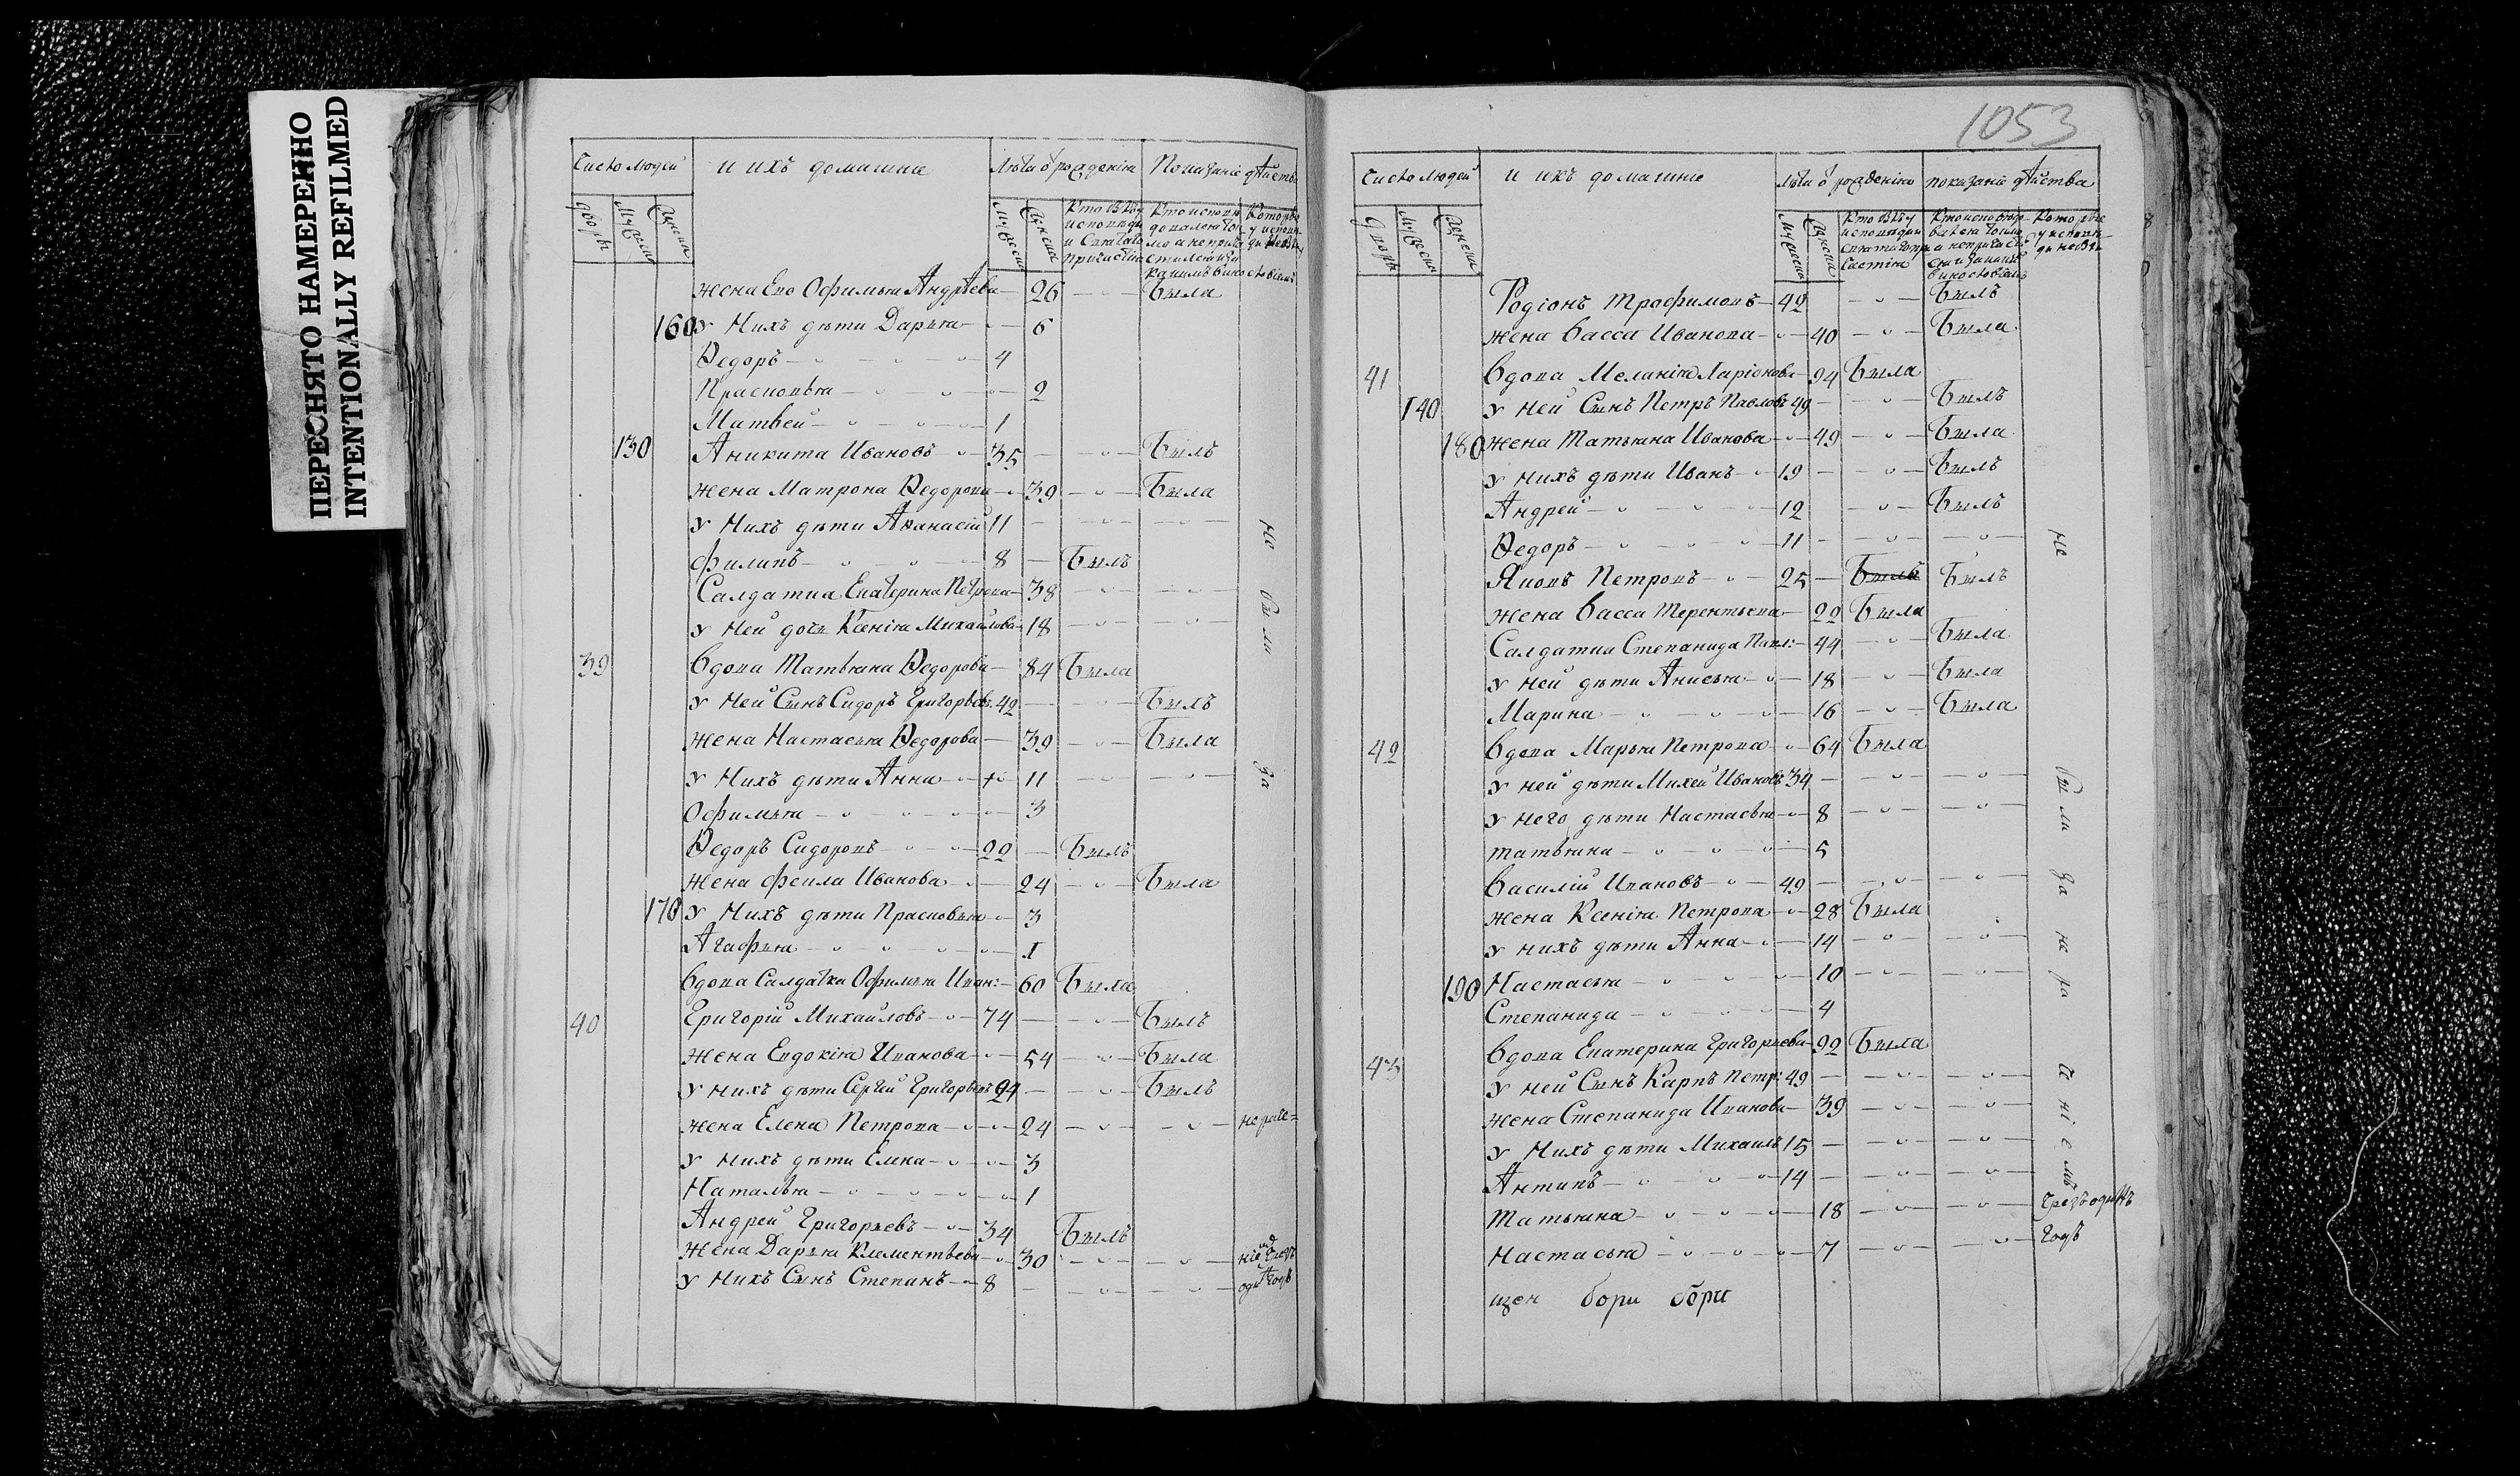 ПЕРЕСНЯТО НАМЕРЕННО
INTENTIONALLY REFILMED
1053
Число людей и ихъ домашніе Лѣта ѿ рожденія Показаніе дѣйства
дворы мужеска женска мужеска женска
жена Его Офимья Андрѣева 26 Была
160 У Нихъ дѣти Дарья 6
Ѳедоръ 4
Прасковья 2
Матвей 1
130 Аникита Ивановъ 35 Былъ
жена Матрона Ѳедорова 39 Была
У Нихъ дѣти Аѳанасій 11
Филипъ 8 Былъ
Салдатка Екатерина Петрова 38
У Ней дочь Ксенія Михайлова 18
39 Вдова Татьяна Ѳедорова 84 Была
У Ней Сынъ Сидоръ Григорьевъ 42 Былъ
жена Настасья Ѳедорова 39 Была
У Нихъ дѣти Анна 11
Офимья 3
Ѳедоръ Сидоровъ 22 Былъ
жена Фекла Иванова 24 Была
170 У Нихъ дѣти Прасковья 3
Агафья 1
Вдова Салдатка Офимья Иван: 60 Была
40 Григорій Михайловъ 74 Былъ
жена Евдокія Иванова 54 Была
У нихъ дѣти Сергій Григорьевъ 24 Былъ
жена Елена Петрова 24 нераче=
У нихъ дѣти Елена 3
Наталья 1
Андрей Григорьевъ 34 Былъ
жена Дарья Клементьева 30
У Нихъ Сынъ Степанъ 8
не были за
Число людей и ихъ домашніе Лѣта ѿ рожденію показаніе дѣйства
дворы мужеска женска мужеска женска
Родіонъ Трофимовъ 42 Былъ
жена Васса Иванова 40 Была
41 Вдова Меланія Ларіонова 94 Была
140 У ней Сынъ Петръ Павловъ 49 Былъ
180 жена Татьяна Иванова 49 Была
У нихъ дѣти Иванъ 19 Былъ
Андрей 12 Былъ
Ѳедоръ 11
Яковъ Петровъ 25 Былъ Былъ
жена Васса Терентьева 22 Была
Салдатка Степанида Павл: 44 Была
У ней дѣти Анисья 18 Была
Марина 16 Была
42 Вдова Марья Петрова 64 Была
У ней дѣти Михей Ивановъ 34
У него дѣти Настасья 8
Татьяна 5
Василій Ивановъ 49
жена Ксенія Петрова 28 Была
У нихъ дѣти Анна 14
190 Настасья 10
Степанида 4
43 Вдова Екатерина Григорьева 92 Была
У ней Сынъ Карпъ Петр: 49
жена Степанида Иванова 39
У Нихъ дѣти Михаилъ 15
Антипъ 14
Татьяна 18 Чрезъ одинъ
Настасья 7 годъ
не были за нера чѣ ні е мъ